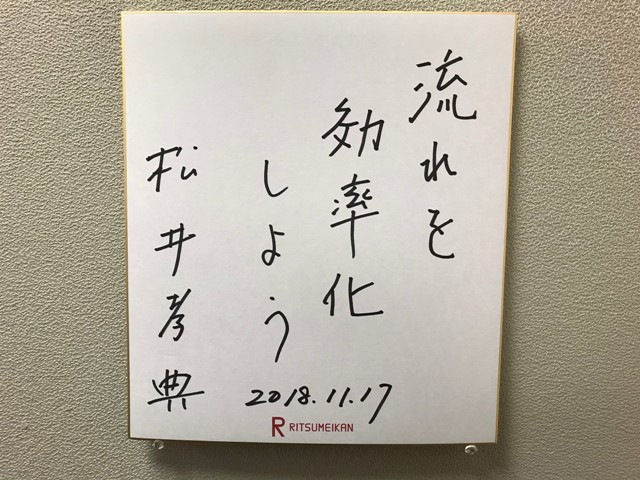 流れを
効率化
しよう
松井孝典
2018.11.17
R RITSUMEIKAN